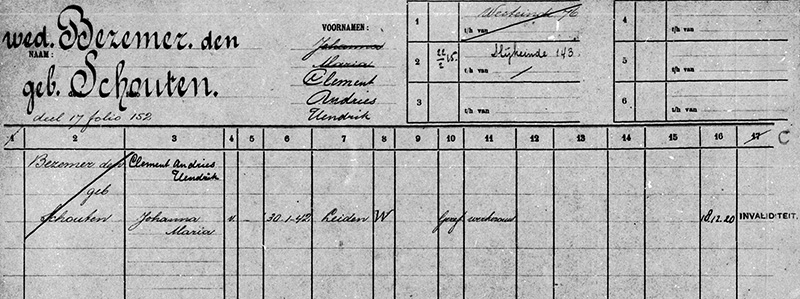 wed. Bezemer. den
NAAM:
geb. Schouten.
deel 17 folio 152
VOORNAMEN:
Johanna
Maria
Clement
Andries
Hendrik
1
Westeinde
t/h van
2 22/2 15. Slijkeinde 143.
t/h van
3
t/h van
4
t/h van
5
t/h van
6
t/h van
1 2 3 4 5 6 7 8 9 10 11 12 13 14 15 16 17 C
Bezemer den Clement Andries
Hendrik
geb
Schouten Johanna v. 30-1-42 Leiden W Geref 18.12.20 INVALIDITEIT.
Maria